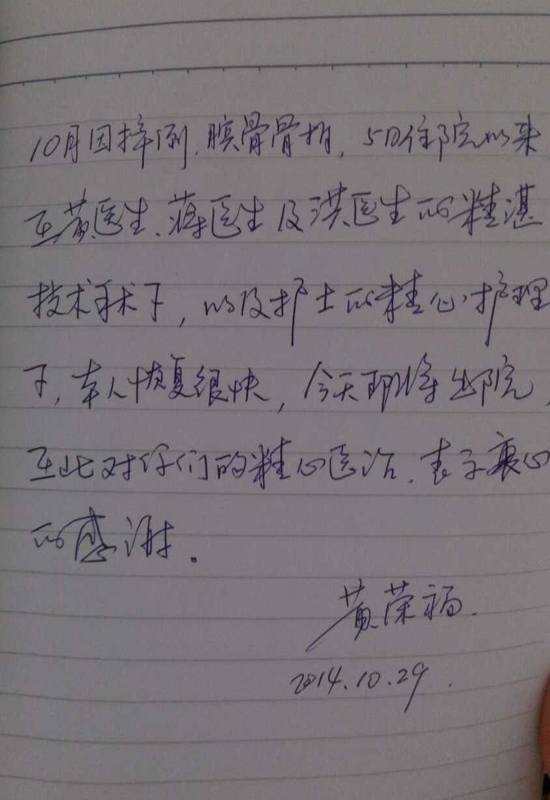 10月因摔倒、髌骨骨折，5日住院以来
在黄医生、蒋医生及洪医生的精湛
技术手术下，以及护士的精心护理
下，本人恢复很快，今天即将出院，
在此对你们的精心医治，表示衷心
的感谢。
黄荣福
2014.10.29.